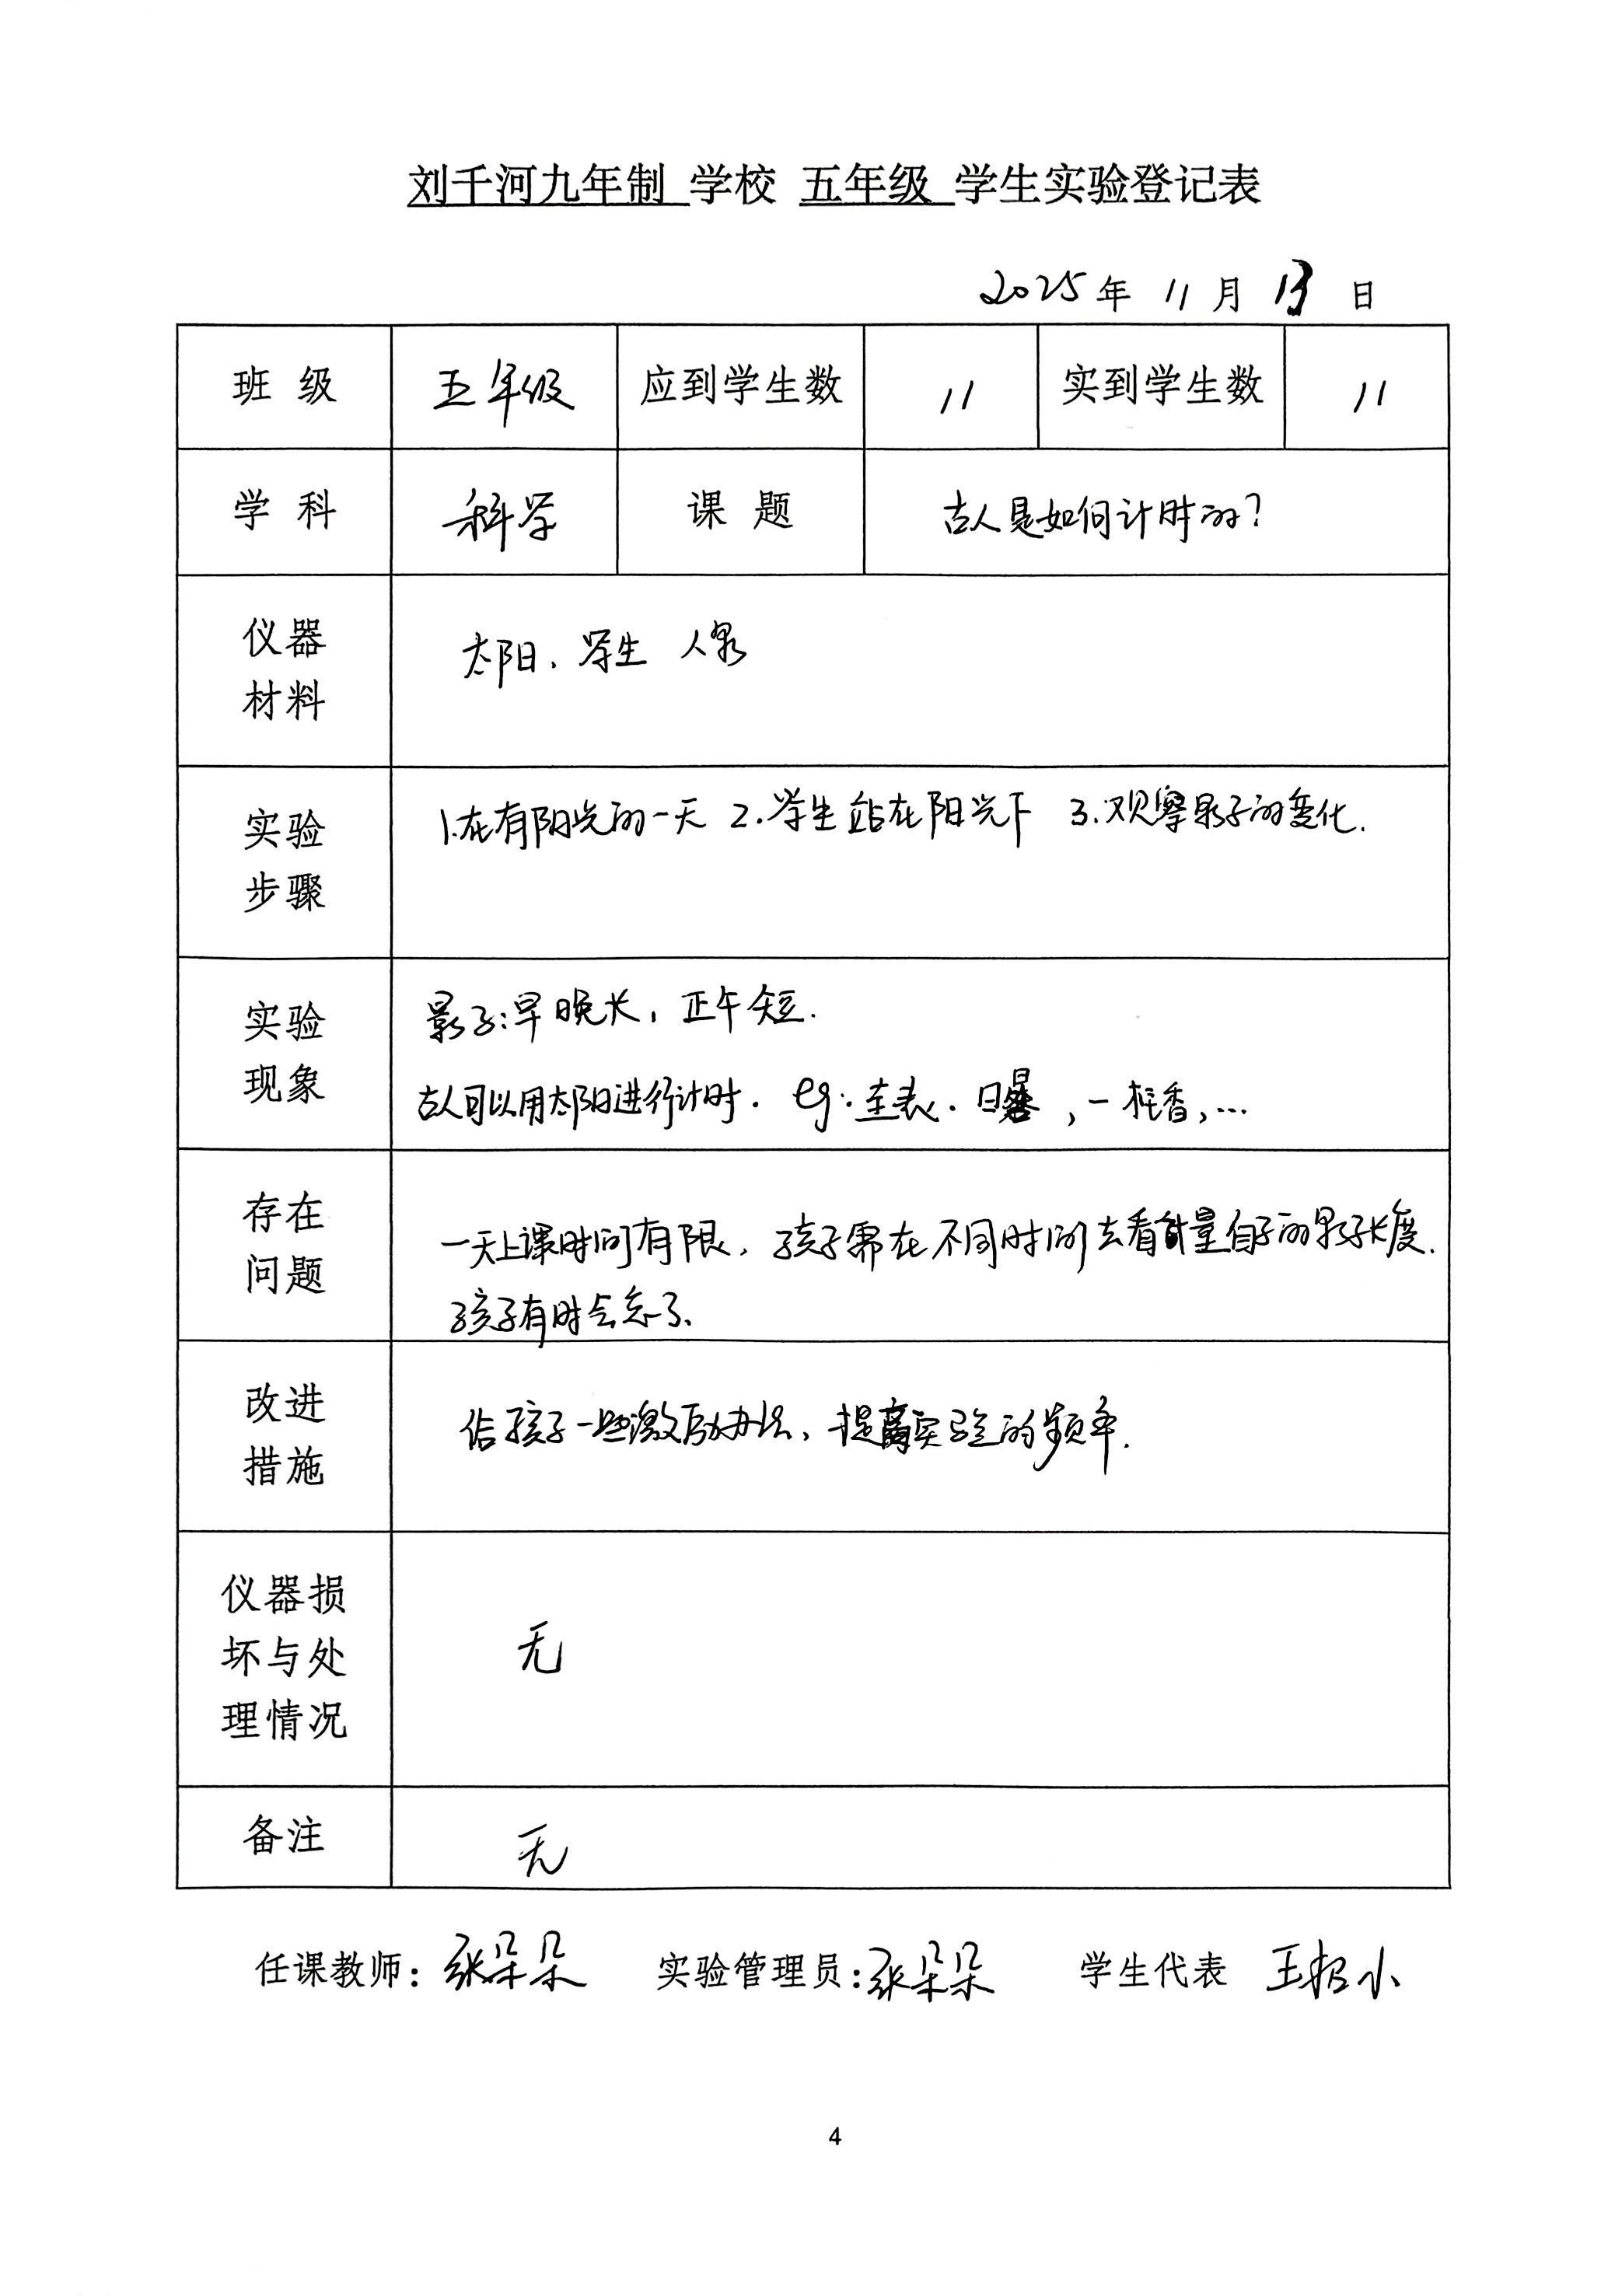 刘千河九年制 学校 五年级 学生实验登记表
2025 年 11 月 13 日
班 级 五年级 应到学生数 11 实到学生数 11
学 科 科学 课 题 古人是如何计时的?
仪器
材料
太阳、学生 人影
实验
步骤
1.在有阳光的一天 2.学生站在阳光下 3.观察影子的变化.
实验
现象
影子:早晚长,正午短.
古人可以用太阳进行计时. eg:圭表.日晷,一柱香,...
存在
问题
一天上课时间有限,孩子需在不同时间去看量自子的影子长度.
孩子有时会忘了.
改进
措施
给孩子一些激励办法,提高实验的频率.
仪器损
坏与处
理情况
无
备注
无
任课教师:张朵朵 实验管理员:张朵朵 学生代表 王 小
4